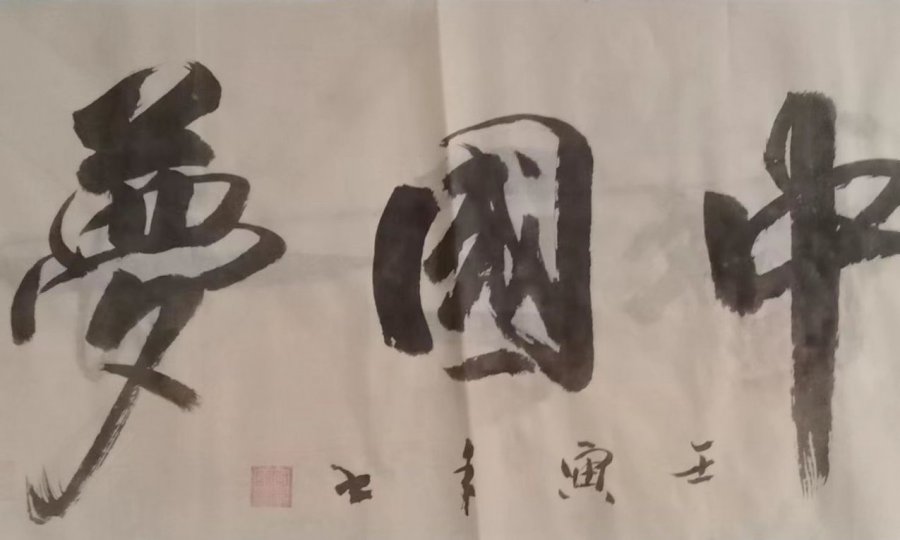 中國夢
壬寅年書